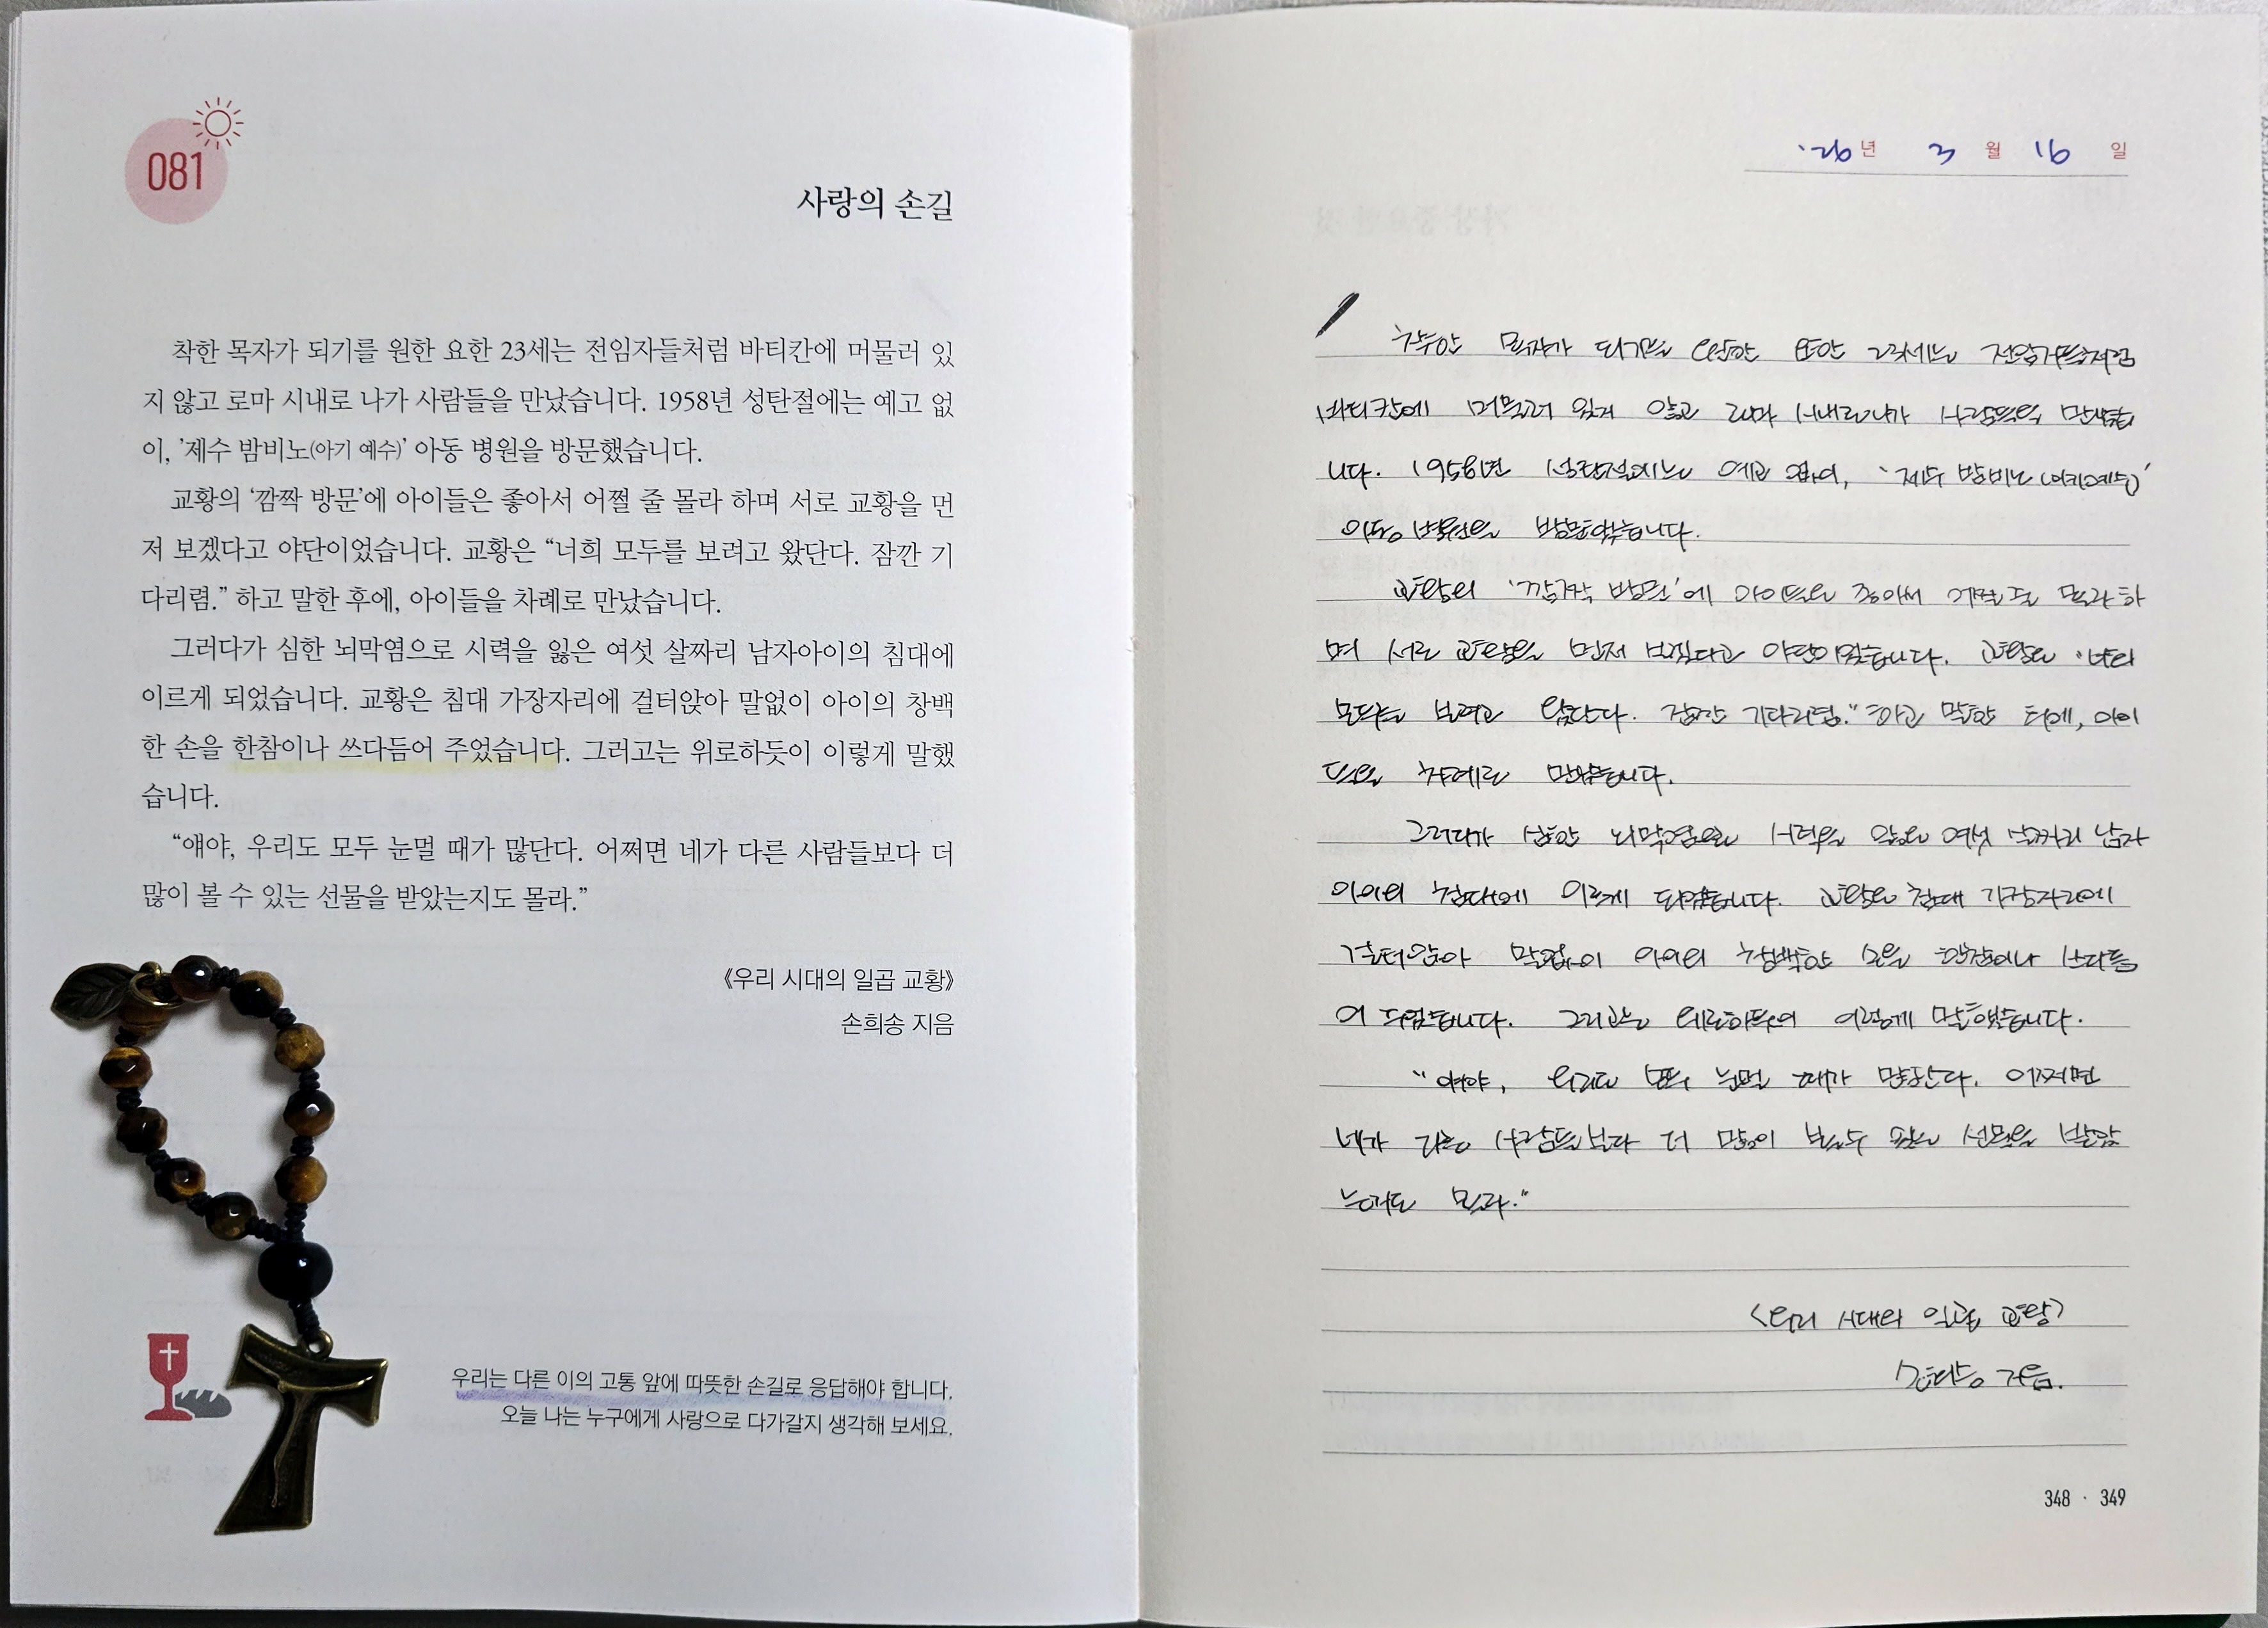 081
사랑의 손길
착한 목자가 되기를 원한 요한 23세는 전임자들처럼 바티칸에 머물러 있
지 않고 로마 시내로 나가 사람들을 만났습니다. 1958년 성탄절에는 예고 없
이, '제수 밤비노(아기 예수)' 아동 병원을 방문했습니다.
교황의 '깜짝 방문'에 아이들은 좋아서 어쩔 줄 몰라 하며 서로 교황을 먼
저 보겠다고 야단이었습니다. 교황은 “너희 모두를 보려고 왔단다. 잠깐 기
다리렴.” 하고 말한 후에, 아이들을 차례로 만났습니다.
그러다가 심한 뇌막염으로 시력을 잃은 여섯 살짜리 남자아이의 침대에
이르게 되었습니다. 교황은 침대 가장자리에 걸터앉아 말없이 아이의 창백
한 손을 한참이나 쓰다듬어 주었습니다. 그러고는 위로하듯이 이렇게 말했
습니다.
“얘야, 우리도 모두 눈멀 때가 많단다. 어쩌면 네가 다른 사람들보다 더
많이 볼 수 있는 선물을 받았는지도 몰라.”
《우리 시대의 일곱 교황》
손희송 지음
우리는 다른 이의 고통 앞에 따뜻한 손길로 응답해야 합니다.
오늘 나는 누구에게 사랑으로 다가갈지 생각해 보세요.
'26년 3월 16일
착한 목자가 되기를 원한 요한 23세는 전임자들처럼
바티칸에 머물러 있지 않고 로마 시내로 나가 사람들을 만났습
니다. 1958년 성탄절에는 예고 없이, '제수 밤비노 (아기예수)'
아동 병원을 방문했습니다.
교황의 '깜짝 방문'에 아이들은 좋아서 어쩔 줄 몰라 하
며 서로 교황을 먼저 보겠다고 야단이었습니다. 교황은 "너희
모두를 보려고 왔단다. 잠깐 기다리렴." 하고 말한 후에, 아이
들을 차례로 만났습니다.
그러다가 심한 뇌막염으로 시력을 잃은 여섯 살짜리 남자
아이의 침대에 이르게 되었습니다. 교황은 침대 가장자리에
걸터앉아 말없이 아이의 창백한 손을 한참이나 쓰다듬
어 주었습니다. 그리고는 위로하듯이 이렇게 말했습니다.
"얘야, 우리도 모두 눈멀 때가 많단다. 어쩌면
네가 다른 사람들보다 더 많이 볼 수 있는 선물을 받았
는지도 몰라."
<우리 시대의 일곱 교황>
손희송 지음.
348 · 349